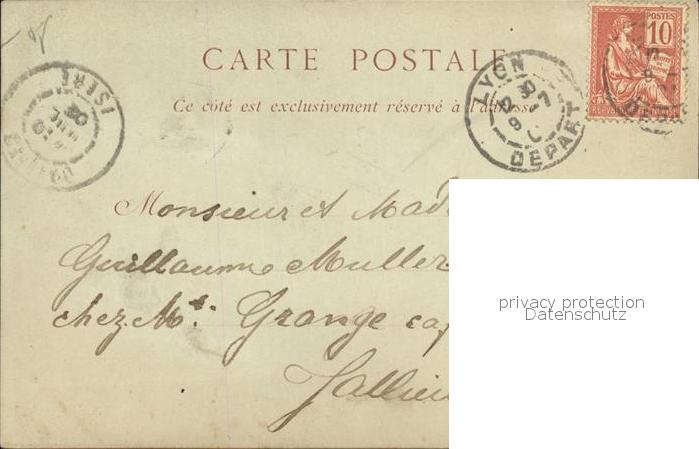 POSTES
10
CARTE POSTALE
LYON
DEPART
ISERE
Ce côté est exclusivement réservé à l'adresse
Monsieur et Mad
Guillaume Muller
chez Mr. Grange ca
Jallieu
privacy protection
Datenschutz